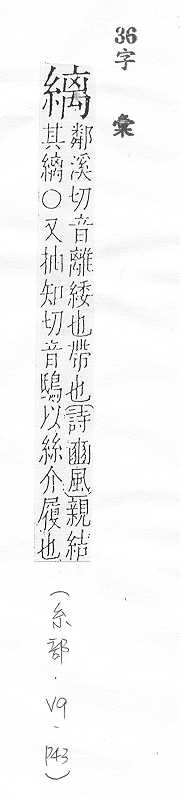 36字 彙
縭
鄰溪切音離緌也帶也(詩豳風)親結
其縭○又抽知切音鴟以絲介履也
(糸部·V9-P43)